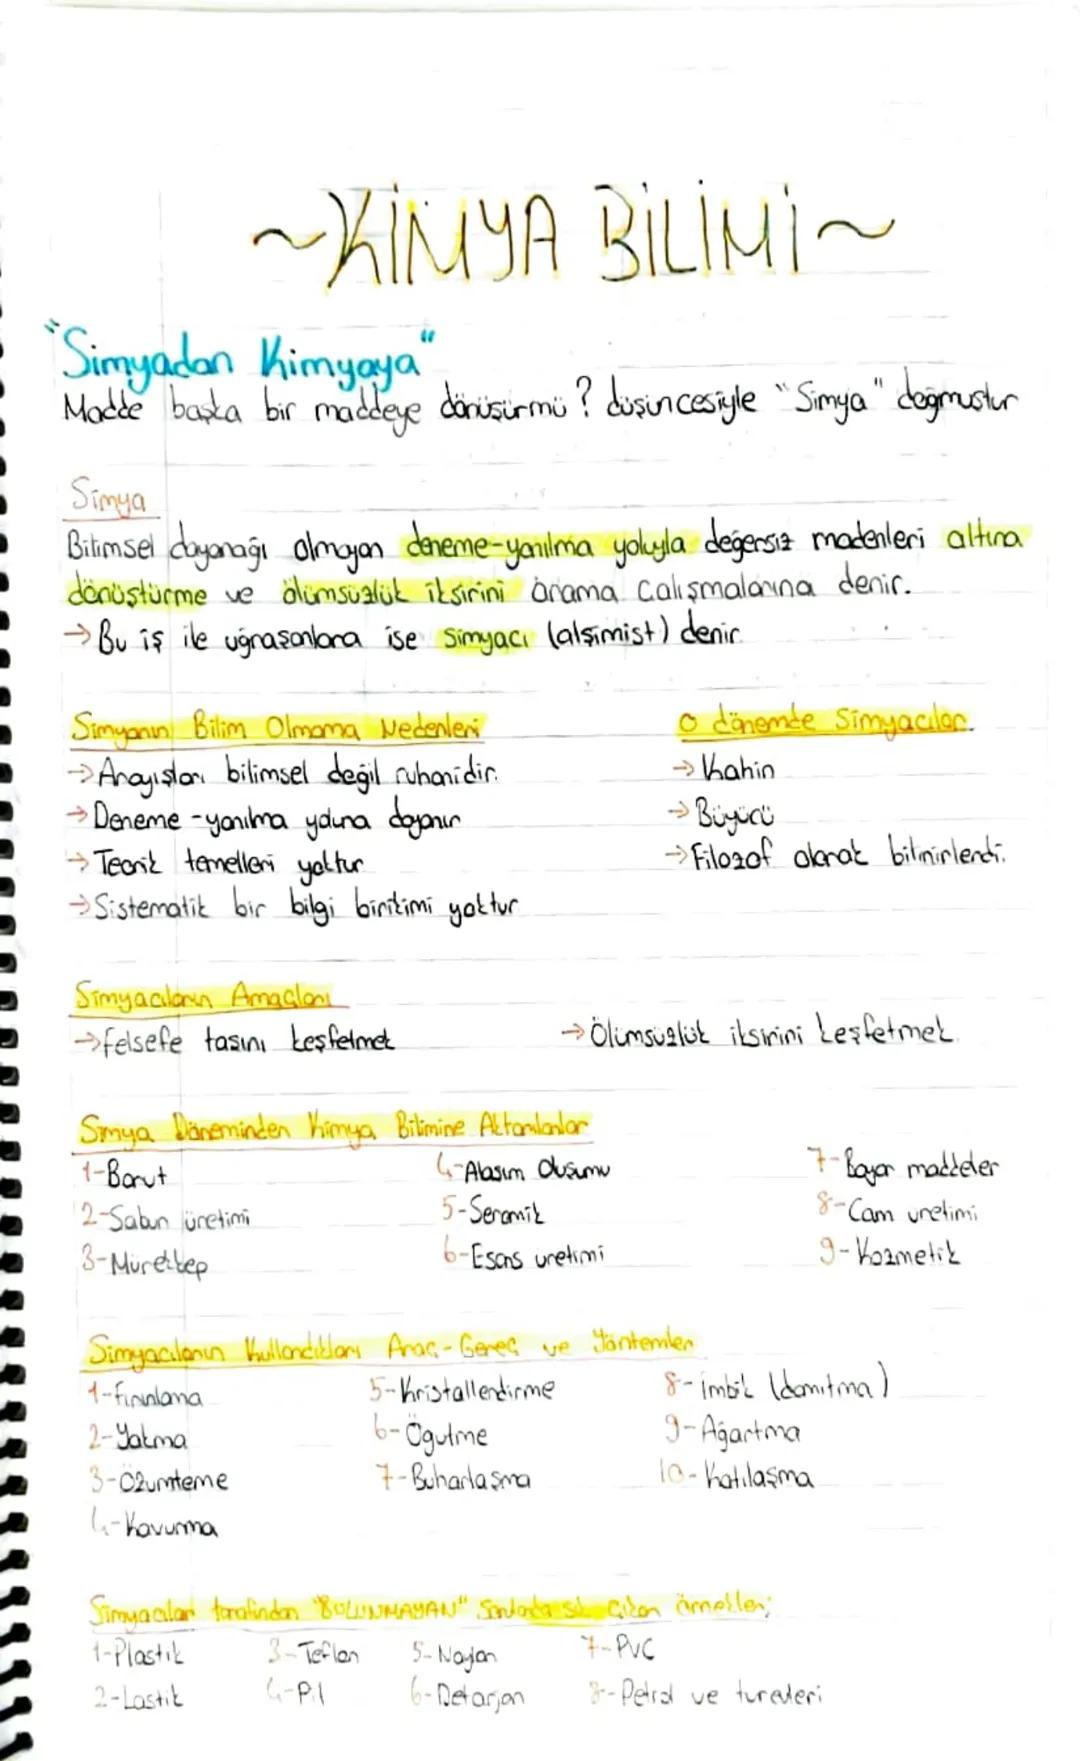 ~KİMYA BİLİMİ~
"Simyadan Kimyaya"
Madde başka bir maddeye dönüşürmü? düşüncesiyle "Simya" doğmuştur
Simya
Bilimsel dayanağı olmayan deneme-yanılma yoluyla değersiz madenleri altına
dönüştürme ve ölümsüzlük iksirini arama çalışmalarına denir.
→Bu iş ile uğraşanlara ise simyacı (alşimist) denir
Simyanın Bilim Olmama Nedenleri
→Arayışları bilimsel değil ruhanidir.
→Deneme-yanılma yoluna dayanır
→Teorik temelleri yoktur
→Sistematik bir bilgi birikimi yoktur
O dönemde Simyacılar
→Kahin
→Büyücü
→Filozof olarak bilinirlerdi.
Simyacıların Amaçları
→felsefe taşını keşfetmek
→Ölümsüzlük iksirini keşfetmek.
Simya Döneminden Kimya Bilimine Aktarılanlar
1-Barut
2-Sabun üretimi
3-Mürekkep
4-Alaşım Oluşumu
5-Seramik
6-Esans üretimi
7-Boyar maddeler
8-Cam üretimi
9-Kozmetik
Simyacıların Kullandıkları Araç-Gereç ve Yöntemler
1-fırınlama
2-Yakma
3-Özümleme
4-Kavurma
5-Kristallendirme
6-Öğütme
7-Buharlaşma
8-imbik (damıtma)
9-Ağartma
10-Katılaşma
Simyacılar tarafından "BULUNMAYAN" Sorularda sık Çıkan örnekler;
1-Plastik
2-Lastik
3-Teflon
4-Pil
5-Naylon
6-Deterjan
7-PVC
8-Petrol ve türevleri